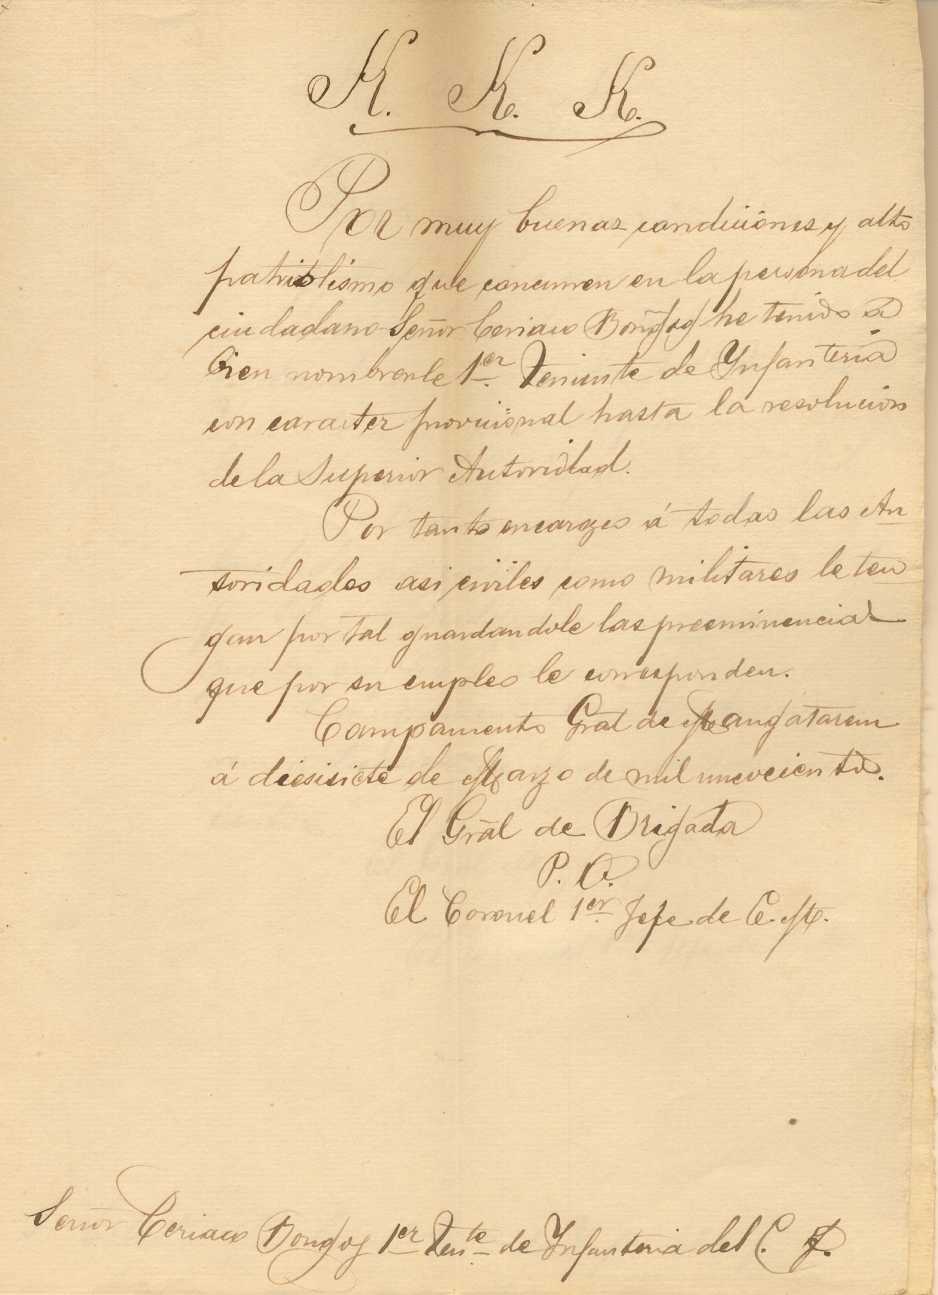 K. K. K.
Por muy buenas condiciones y alto
patriotismo que concurren en la persona del
ciudadano Señor Ceriaco Bongog he tenido a
bien nombrenle 1er Teniente de Ynfanteria
con caracter provicional hasta la resolucion
de la Superior Autoridad.
Por tanto encargeo á todas las Au
toridades asi civiles como militares le ten
gan por tal guardandole las preeminencias
que por su empleo le corresponden.
Campamento Gral de Mangatarem
á diesisiete de Marzo de mil nuevecientos.
El Grãl de Brigada
P. O.
El Coronel 1er Jefe de E. M.
Señor Ceriaco Bongog 1er Tente de Ynfanteria del